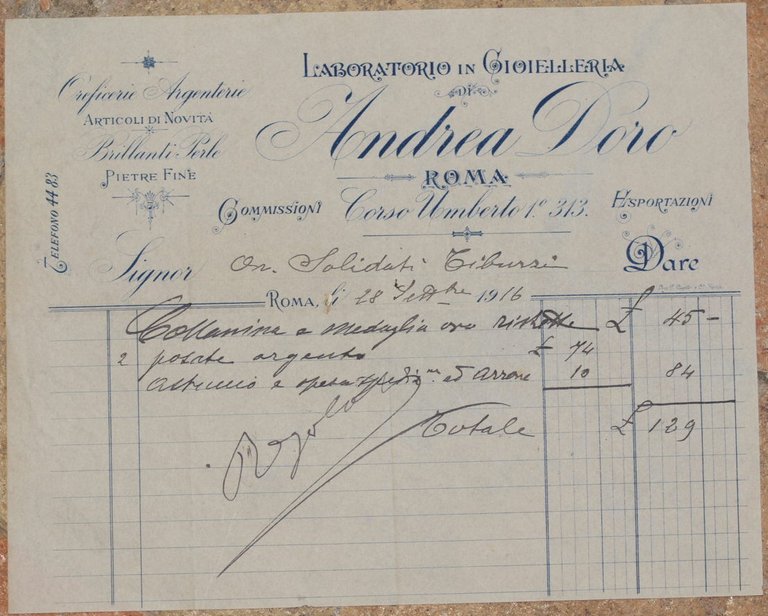 Oreficerie Argenterie
ARTICOLI DI NOVITÀ
Brillanti Perle
PIETRE FINE
TELEFONO 44 83
LABORATORIO IN GIOIELLERIA
DI
Andrea Doro
ROMA
COMMISSIONI Corso Umberto 1º 313. ESPORTAZIONI
Signor On. Solidati Tiburzi Dare
ROMA, li 28 Settbre 1916
Collanina e medaglia oro £ 45 -
2 posate argento £ 74
astuccio e spesa ed Arrone 10 84
Totale £ 129